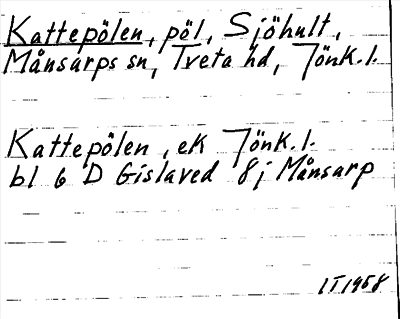 Kattepölen, pöl, Sjöhult,
Månsarps sn, Tveta hd, Jönk. l.
Kattepölen, ek Jönk. l.
bl 6 D Gislaved 8j Månsarp
IT1958